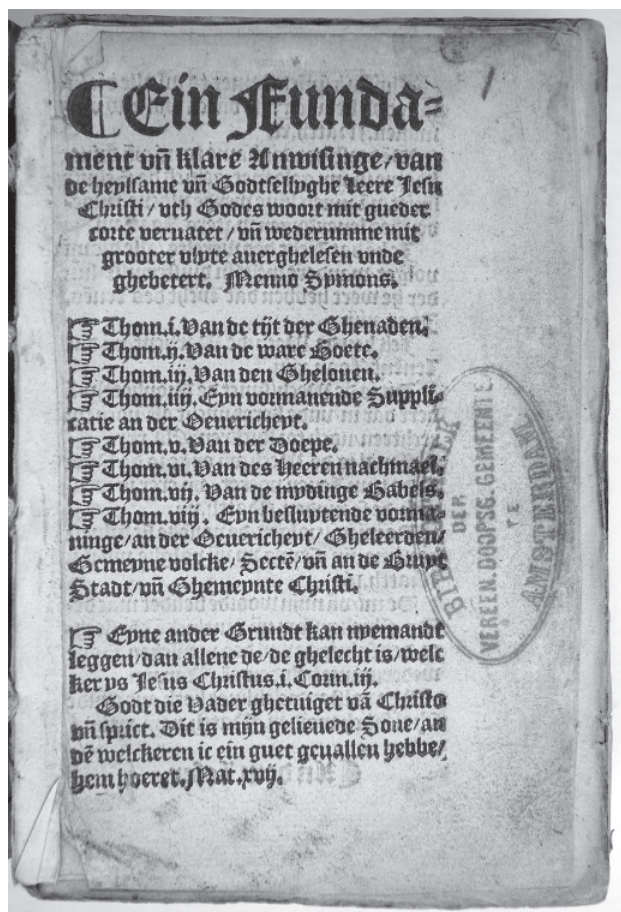 ⸿ Ein Funda⸗
ment vñ klare Anwisinge/van
de heylsame vñ Godtsellyghe Leere Jesu
Christi/vth Godes woort mit gueder
corte veruatet/vñ wederumme mit
grooter vlyte auerghelesen vnde
ghebetert. Menno Symons.
☞ Thom.i.Van de tijt der Ghenaden.
☞ Thom.ij.Van de ware Boete.
☞ Thom.iij.Van den Ghelouen.
☞ Thom.iiij.Eyn vormanende Suppli⸗
catie an der Oeuericheyt.
☞ Thom.v.Van der Doepe.
☞ Thom.vi.Van des Heeren nachmael.
☞ Thom.vij. Van de mydinge Babels.
☞ Thom.viij. Eyn besluytende vorma⸗
ninge/an der Oeuericheyt/Gheleerden/
Gemeyne volcke/Sectẽ/vñ an de Bruyt
Stadt/vñ Ghemeynte Christi.
☞ Eyne ander Grundt kan nyemandt
leggen/dan allene de/de ghelecht is/welc
ker ys Jesus Christus.i.Corin.iij.
Godt die Vader ghetuiget vã Christo
vñ sprict. Dit is mijn gelieuede Sone/an
dẽ welckeren ic ein guet geuallen hebbe/
hem hoeret.Mat.xvij.
DER
VEREEN. DOOPSG. GEMEENTE
TE
AMSTERDAM.